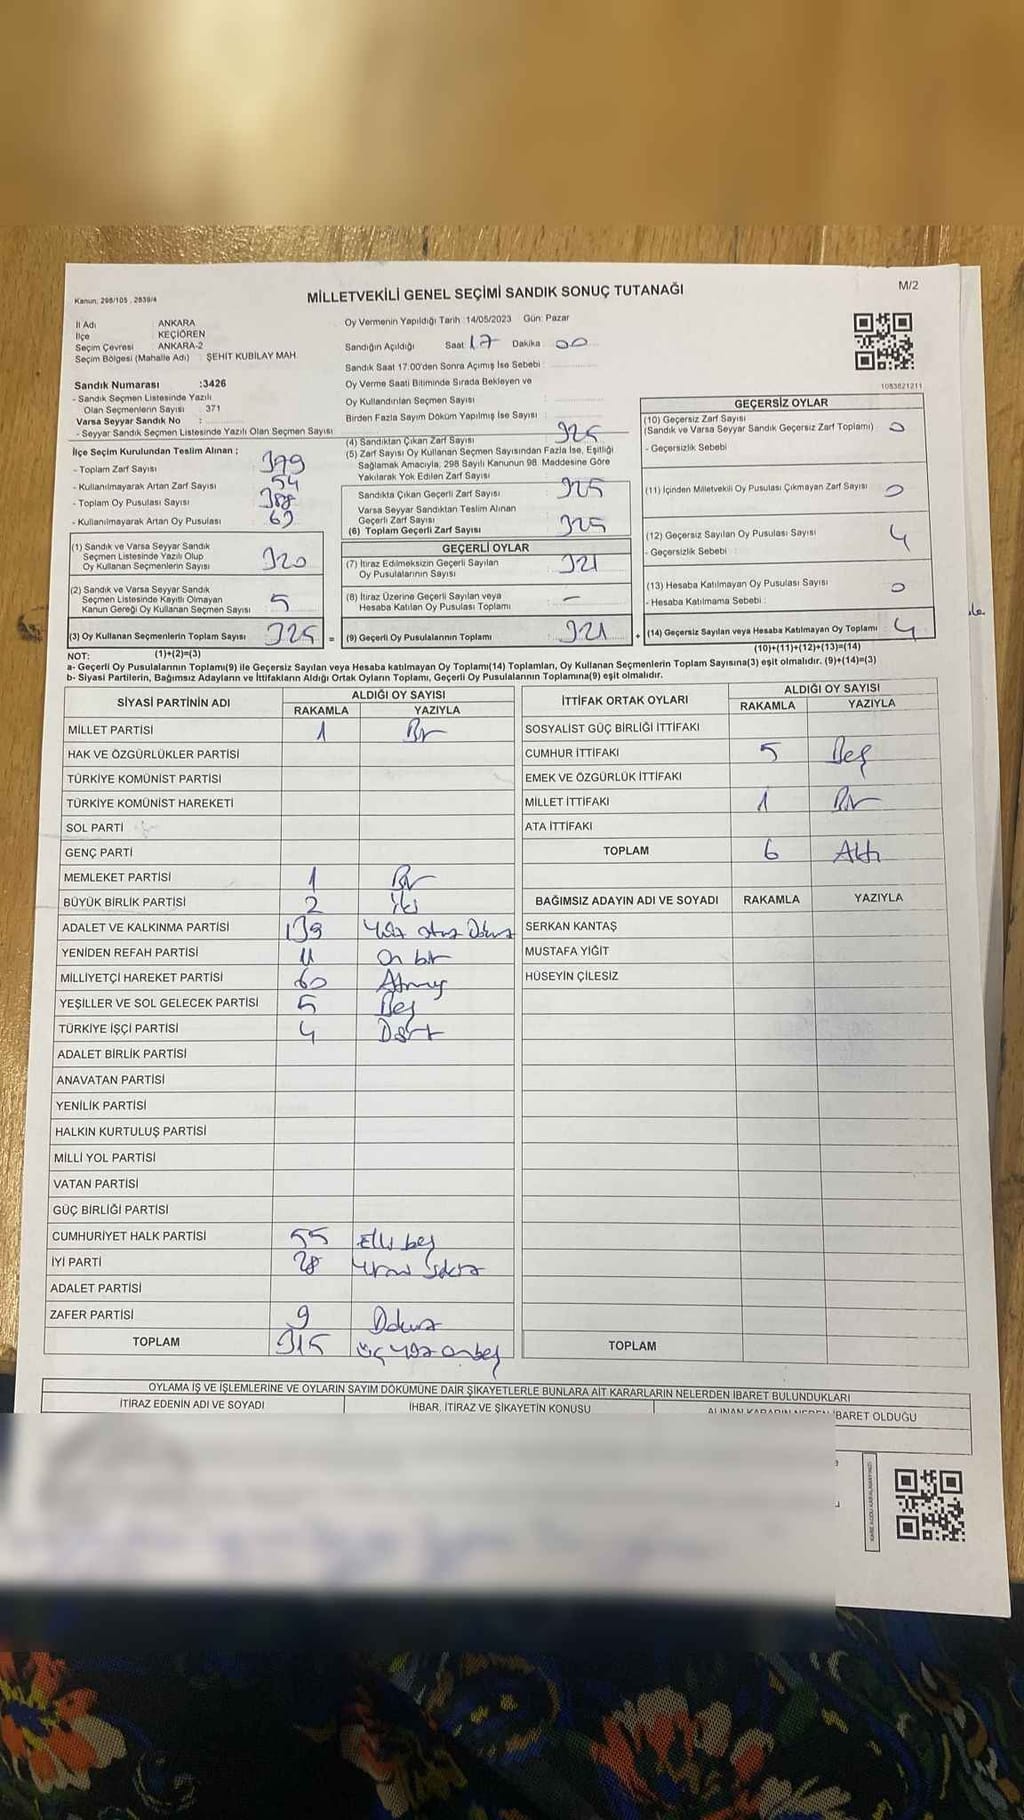 Kanun: 298/105 , 2839/4
MİLLETVEKİLİ GENEL SEÇİMİ SANDIK SONUÇ TUTANAĞI
M/2
İl Adı ANKARA
İlçe KEÇİÖREN
Seçim Çevresi ANKARA-2
Seçim Bölgesi (Mahalle Adı) : ŞEHİT KUBİLAY MAH.
Sandık Numarası :3426
- Sandık Seçmen Listesinde Yazılı
Olan Seçmenlerin Sayısı : 371
Varsa Seyyar Sandık No :
- Seyyar Sandık Seçmen Listesinde Yazılı Olan Seçmen Sayısı :
İlçe Seçim Kurulundan Teslim Alınan ;
- Toplam Zarf Sayısı 379
- Kullanılmayarak Artan Zarf Sayısı 54
- Toplam Oy Pusulası Sayısı 388
- Kullanılmayarak Artan Oy Pusulası 63
(1) Sandık ve Varsa Seyyar Sandık
Seçmen Listesinde Yazılı Olup
Oy Kullanan Seçmenlerin Sayısı 320
(2) Sandık ve Varsa Seyyar Sandık
Seçmen Listesinde Kayıtlı Olmayan
Kanun Gereği Oy Kullanan Seçmen Sayısı 5
(3) Oy Kullanan Seçmenlerin Toplam Sayısı 325 =
Oy Vermenin Yapıldığı Tarih :14/05/2023 Gün: Pazar
Sandığın Açıldığı Saat 17 Dakika 00
Sandık Saat 17.00'den Sonra Açımış İse Sebebi :
Oy Verme Saati Bitiminde Sırada Bekleyen ve
Oy Kullandırılan Seçmen Sayısı :
Birden Fazla Sayım Döküm Yapılmış İse Sayısı :
(4) Sandıktan Çıkan Zarf Sayısı 325
(5) Zarf Sayısı Oy Kullanan Seçmen Sayısından Fazla İse, Eşitliği
Sağlamak Amacıyla, 298 Sayılı Kanunun 98. Maddesine Göre
Yakılarak Yok Edilen Zarf Sayısı
Sandıkta Çıkan Geçerli Zarf Sayısı 325
Varsa Seyyar Sandıktan Teslim Alınan
Geçerli Zarf Sayısı
(6) Toplam Geçerli Zarf Sayısı 325
GEÇERLİ OYLAR
(7) İtiraz Edilmeksizin Geçerli Sayılan
Oy Pusulalarının Sayısı 321
(8) İtiraz Üzerine Geçerli Sayılan veya
Hesaba Katılan Oy Pusulası Toplamı –
(9) Geçerli Oy Pusulalarının Toplamı 321 +
1083821211
GEÇERSİZ OYLAR
(10) Geçersiz Zarf Sayısı
(Sandık ve Varsa Seyyar Sandık Geçersiz Zarf Toplamı) 0
- Geçersizlik Sebebi :
(11) İçinden Milletvekili Oy Pusulası Çıkmayan Zarf Sayısı 0
(12) Geçersiz Sayılan Oy Pusulası Sayısı 4
- Geçersizlik Sebebi :
(13) Hesaba Katılmayan Oy Pusulası Sayısı 0
- Hesaba Katılmama Sebebi :
(14) Geçersiz Sayılan veya Hesaba Katılmayan Oy Toplamı 4
NOT: (1)+(2)=(3) (10)+(11)+(12)+(13)=(14)
a- Geçerli Oy Pusulalarının Toplamı(9) ile Geçersiz Sayılan veya Hesaba katılmayan Oy Toplamı(14) Toplamları, Oy Kullanan Seçmenlerin Toplam Sayısına(3) eşit olmalıdır. (9)+(14)=(3)
b- Siyasi Partilerin, Bağımsız Adayların ve İttifakların Aldığı Ortak Oyların Toplamı, Geçerli Oy Pusulalarının Toplamına(9) eşit olmalıdır.
SİYASİ PARTİNİN ADI ALDIĞI OY SAYISI
RAKAMLA YAZIYLA
MİLLET PARTİSİ 1 Bir
HAK VE ÖZGÜRLÜKLER PARTİSİ
TÜRKİYE KOMÜNİST PARTİSİ
TÜRKİYE KOMÜNİST HAREKETİ
SOL PARTİ
GENÇ PARTİ
MEMLEKET PARTİSİ 1 Bir
BÜYÜK BİRLİK PARTİSİ 2 iki
ADALET VE KALKINMA PARTİSİ 139 Yüz otuz Dokuz
YENİDEN REFAH PARTİSİ 11 On bir
MİLLİYETÇİ HAREKET PARTİSİ 60 Atmış
YEŞİLLER VE SOL GELECEK PARTİSİ 5 Beş
TÜRKİYE İŞÇİ PARTİSİ 4 Dört
ADALET BİRLİK PARTİSİ
ANAVATAN PARTİSİ
YENİLİK PARTİSİ
HALKIN KURTULUŞ PARTİSİ
MİLLİ YOL PARTİSİ
VATAN PARTİSİ
GÜÇ BİRLİĞİ PARTİSİ
CUMHURİYET HALK PARTİSİ 55 Elli beş
İYİ PARTİ 28 Yirmi sekiz
ADALET PARTİSİ
ZAFER PARTİSİ 9 Dokuz
TOPLAM 315 üç yüz onbeş
İTTİFAK ORTAK OYLARI ALDIĞI OY SAYISI
RAKAMLA YAZIYLA
SOSYALİST GÜÇ BİRLİĞİ İTTİFAKI
CUMHUR İTTİFAKI 5 Beş
EMEK VE ÖZGÜRLÜK İTTİFAKI
MİLLET İTTİFAKI 1 Bir
ATA İTTİFAKI
TOPLAM 6 Altı
BAĞIMSIZ ADAYIN ADI VE SOYADI RAKAMLA YAZIYLA
SERKAN KANTAŞ
MUSTAFA YİĞİT
HÜSEYİN ÇİLESİZ
TOPLAM
OYLAMA İŞ VE İŞLEMLERİNE VE OYLARIN SAYIM DÖKÜMÜNE DAİR ŞİKAYETLERLE BUNLARA AİT KARARLARIN NELERDEN İBARET BULUNDUKLARI
İTİRAZ EDENİN ADI VE SOYADI İHBAR, İTİRAZ VE ŞİKAYETİN KONUSU ALINAN KARARIN NEDEN İBARET OLDUĞU